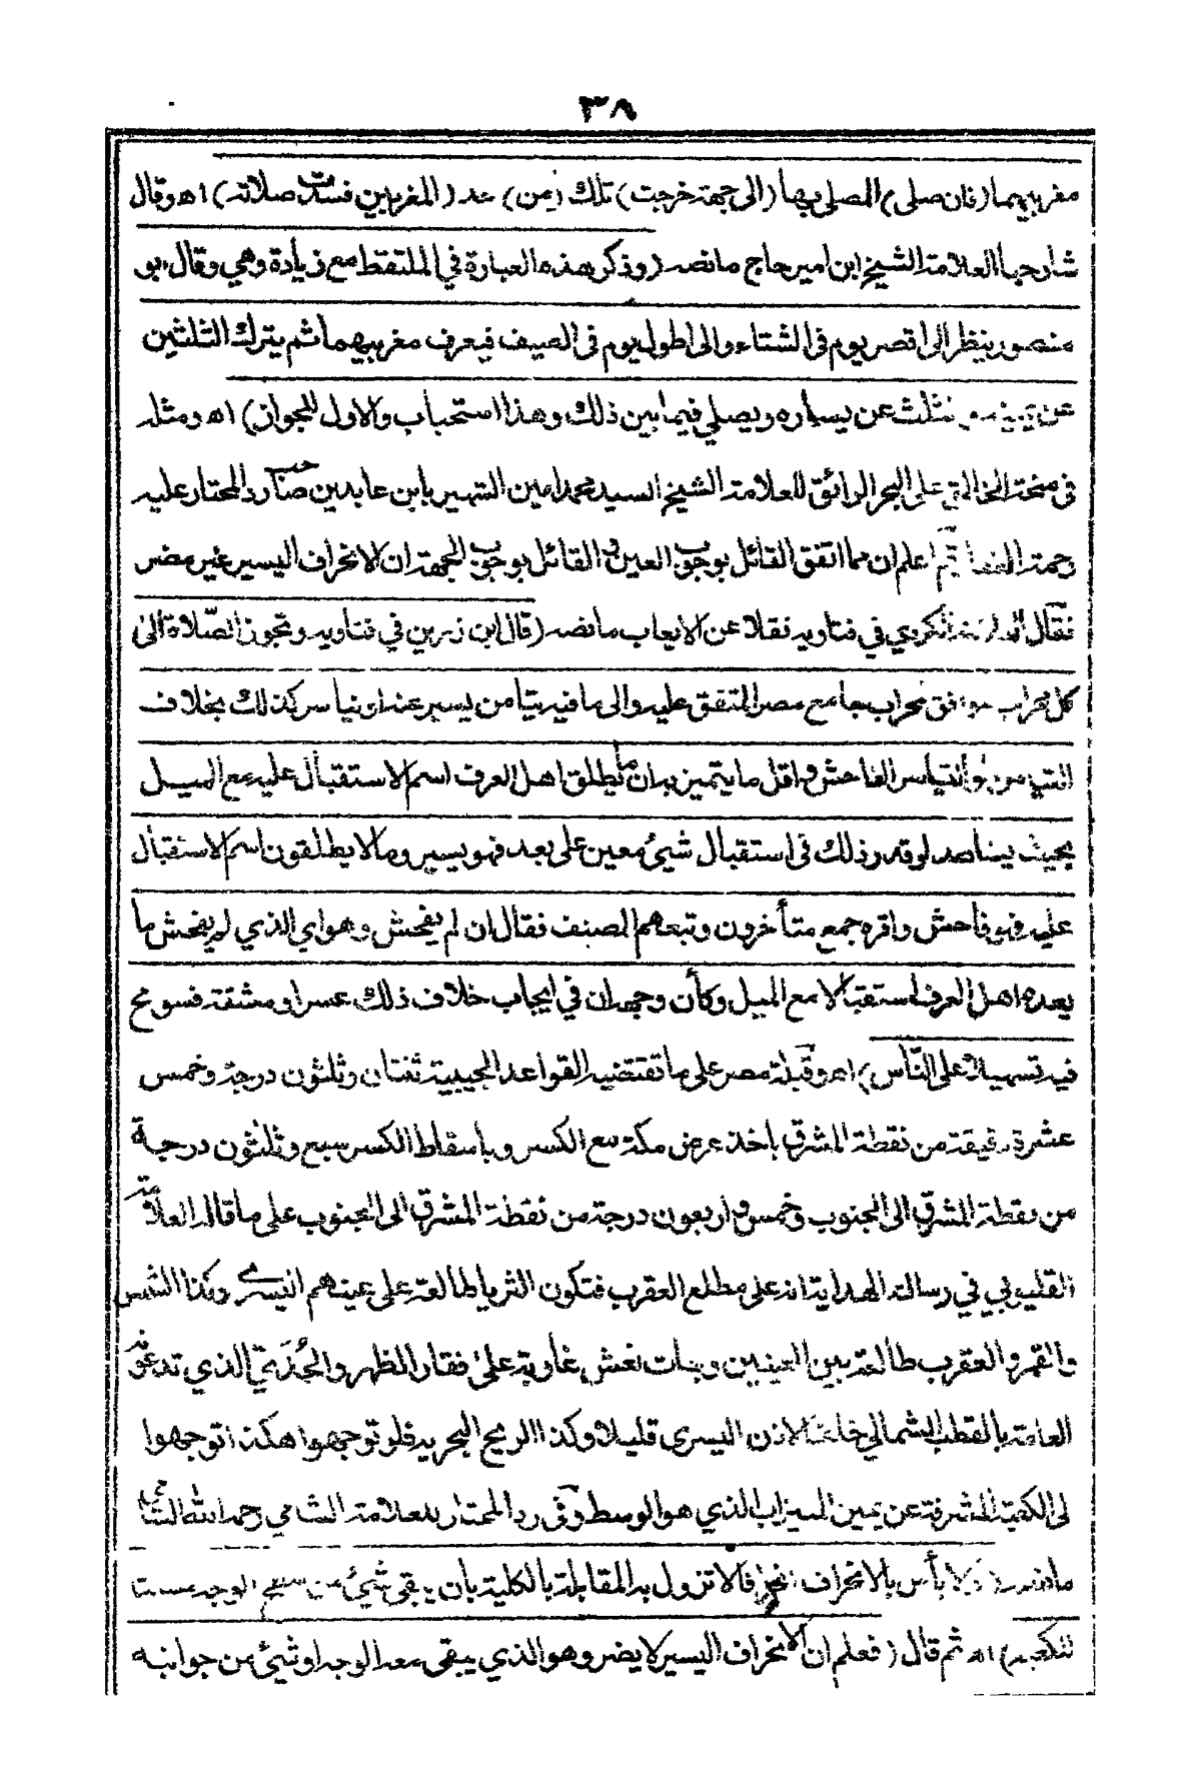 ٣٨
مغربيهما (فان صلى) المصلى بها (الى جهة خرجت) تلك (من) حد (المغربين فسدت صلاته) اھ وقال
شارحها العلامة الشيخ ابن امير حاج ما نصه (وذكر هذه العبارة في الملتقط مع زيادة وهي وقال ابو
منصور ينظر الى اقصر يوم فى الشتاء والى اطول يوم فى الصيف فيعرف مغربيهما ثم يترك الثلثين
عن يمينه وثلث عن يساره ويصلي فيما بين ذلك وهذا استحباب والاول للجواز) اھ ومثله
فى منحة الخالق على البحر الرائق للعلامة الشيخ السيد محمد امين الشهير بابن عابدين صاحب رد المحتار عليه
رحمة الغفار ثم اعلم ان مما اتفق القائل بوجوب العين والقائل بوجوب الجهة ان الانحراف اليسير غير مضر
فقال العلامة الكردي في فتاويه نقلا عن الايعاب ما نصه (قال ابن زرين في فتاويه وتجوز الصّلاة الى
كل محراب موافق محراب جامع مصر المتفق عليه والى ما فيه تيامن يسير عنه او تياسر كذلك بخلاف
التيامن او التياسر الفاحش واقل ما يتميز به ان ما يطلق اهل العرف اسم الاستقبال عليه مع الميل
بحيث يناصد لو قدر ذلك فى استقبال شيئ معين على بعد فهو يسير وما لا يطلقون اسم الاستقبال
عليه فهو فاحش واقره جمع متأخرون وتبعاهم المصنف فقال ان لم يفحش وهو اي الذي لم يفحش ما
يعده اهل العرف استقبالا مع الميل وكأن وجهه ان في ايجاب خلاف ذلك عسرا ومشقة فسومح
فيه تسهيلا على النّاس) اھ وقبلة مصر على ما تقتضيه القواعد الجيبية ثنتان وثلثون درجة وخمس
عشرة دقيقة من نقطة المشرق باخذ عرض مكة مع الكسر وباسقاط الكسر سبع وثلثون درجة
من نقطة المشرق الى الجنوب وخمس واربعون درجة من نقطة المشرق الى الجنوب على ما قاله العلامة
القليوبي في رسالته الهداية انه على مطلع العقرب فتكون الثريا طالعة على عينهم اليسرى وكذا الشمس
والقمر والعقرب طالعة بين العينين وبنات نعش غاربة على فقار الظهر والجُدَيّ الذي تدعوه
العامة بالقطب الشمالي خلف الاذن اليسرى قليلا وكذا الريح البحرية فلو توجهوا هكذا توجهوا
لى الكعبة المشرفة عن يمين الميزاب الذي هو الوسط وفى رد المحتار للعلامة الشامي رحمه الله الشامي
ما نصه (لا بأس بالانحراف انحرافا لا تزول به المقابلة بالكلية بان يبقى شيئ من سطح الوجه مسامتا
للكعبة) اھ ثم قال (فعلم ان الانحراف اليسير لا يضر وهو الذي يبقى معه الوجه او شيئ من جوانبه